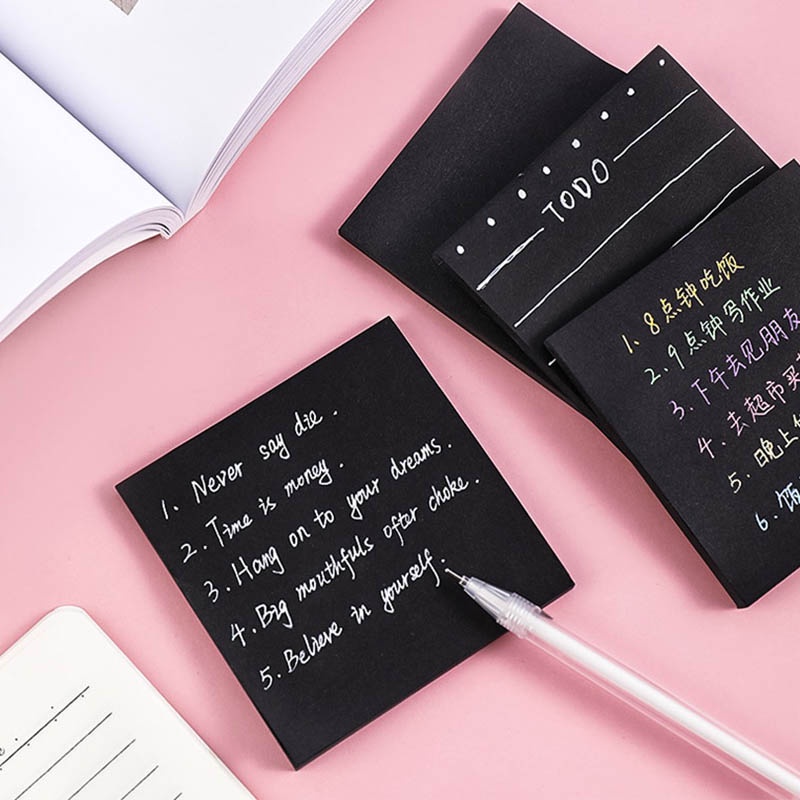 TODO
1、8点钟吃饭
2.9点钟写作业
3、下午去见朋友
4、去超市买
5、晚上
6、饭
1. Never say die.
2. Time is money.
3. Hang on to your dreams.
4. Big mouthfuls ofter choke.
5. Believe in yourself.